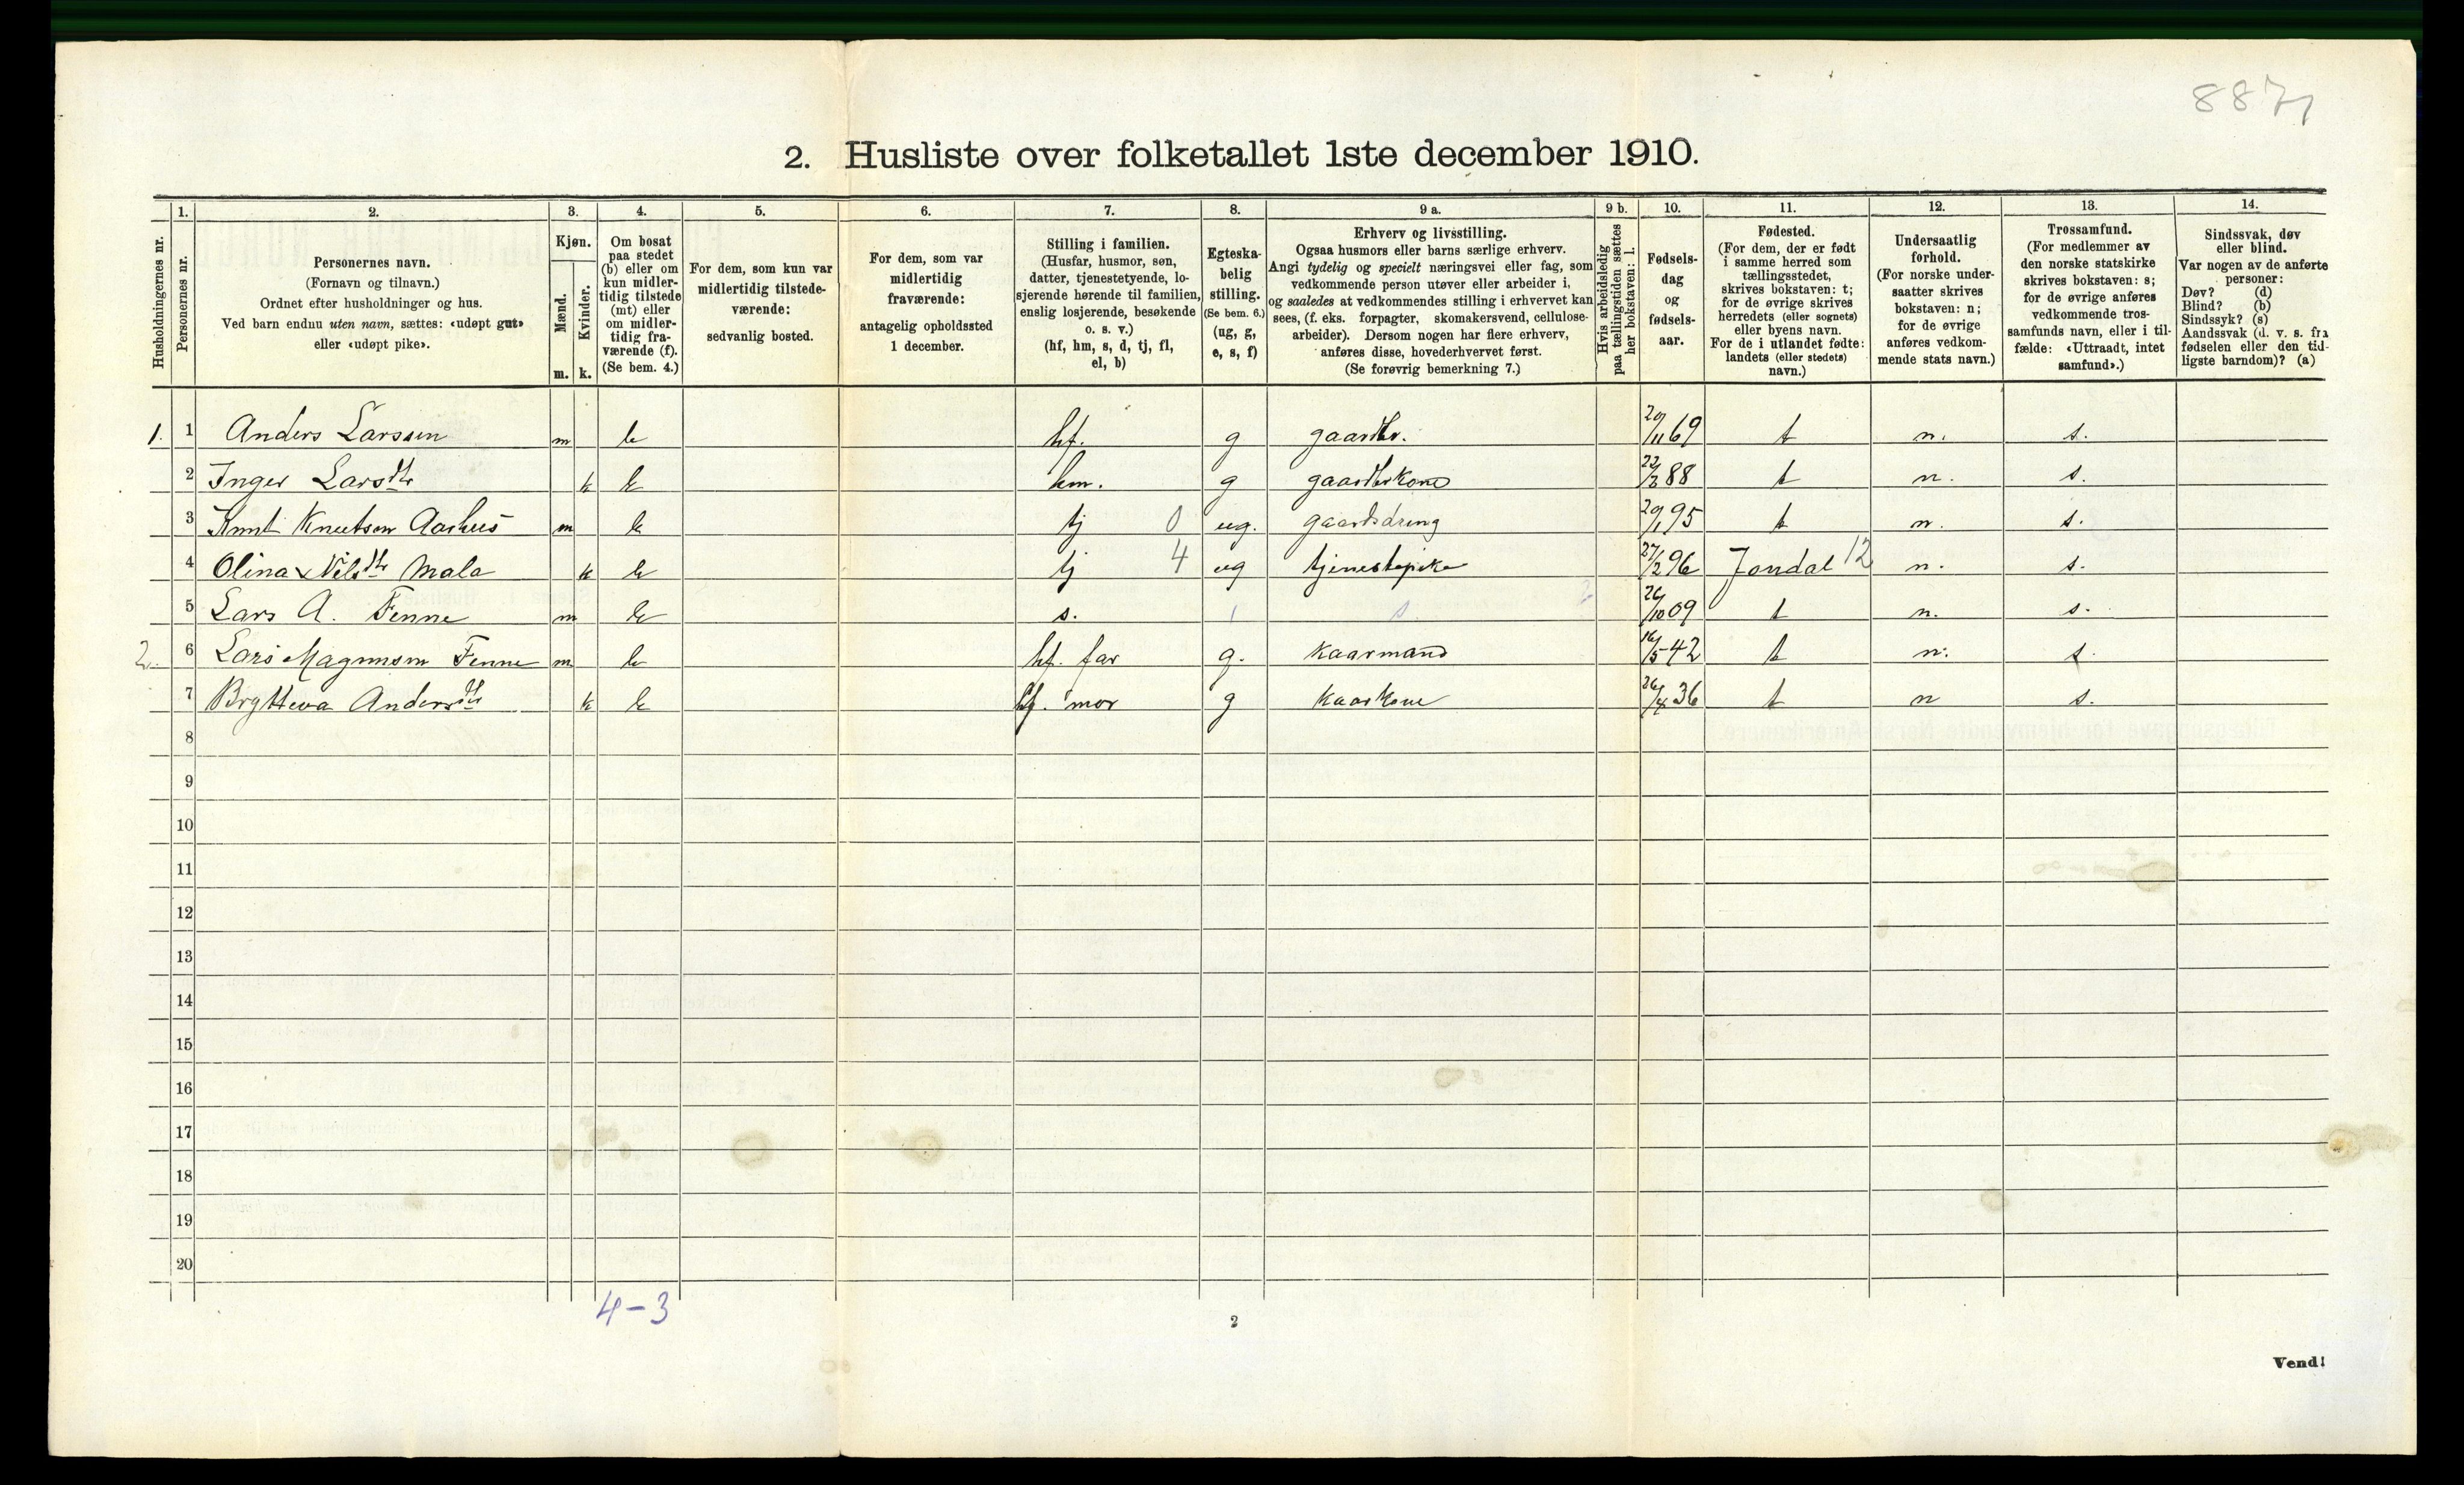 887
2. Husliste over folketallet 1ste december 1910.
Husholdningernes nr.
1. Personernes nr.
2. Personernes navn.
(Fornavn og tilnavn.)
Ordnet efter husholdninger og hus.
Ved barn endnu uten navn, sættes: «udøpt gut»
eller «udøpt pike».
3. Kjøn.
Mænd. Kvinder.
m. k.
4. Om bosat
paa stedet
(b) eller om
kun midler-
tidig tilstede
(mt) eller
om midler-
tidig fra-
værende (f).
(Se bem. 4.)
5. For dem, som kun var
midlertidig tilstede-
værende:
sedvanlig bosted.
6. For dem, som var
midlertidig
fraværende:
antagelig opholdssted
1 december.
7. Stilling i familien.
(Husfar, husmor, søn,
datter, tjenestetyende, lo-
sjerende hørende til familien,
enslig losjerende, besøkende
o. s. v.)
(hf, hm, s, d, tj, fl,
el, b)
8. Egteska-
belig
stilling.
(Se bem. 6.)
(ug, g,
e, s, f)
9 a. Erhverv og livsstilling.
Ogsaa husmors eller barns særlige erhverv.
Angi tydelig og specielt næringsvei eller fag, som
vedkommende person utøver eller arbeider i,
og saaledes at vedkommendes stilling i erhvervet kan
sees, (f. eks. forpagter, skomakersvend, cellulose-
arbeider). Dersom nogen har flere erhverv,
anføres disse, hovederhvervet først.
(Se forøvrig bemerkning 7.)
9 b. Hvis arbeidsledig
paa tællingstiden sættes
her bokstaven: l.
10. Fødsels-
dag
og
fødsels-
aar.
11. Fødested.
(For dem, der er født
i samme herred som
tællingsstedet,
skrives bokstaven: t;
for de øvrige skrives
herredets (eller sognets)
eller byens navn.
For de i utlandet fødte:
landets (eller stedets)
navn.)
12. Undersaatlig
forhold.
(For norske under-
saatter skrives
bokstaven: n;
for de øvrige
anføres vedkom-
mende stats navn.)
13. Trossamfund.
(For medlemmer av
den norske statskirke
skrives bokstaven: s;
for de øvrige anføres
vedkommende tros-
samfunds navn, eller i til-
fælde: «Uttraadt, intet
samfund».)
14. Sindssvak, døv
eller blind.
Var nogen av de anførte
personer:
Døv? (d)
Blind? (b)
Sindssyk? (s)
Aandssvak (d. v. s. fra
fødselen eller den tid-
ligste barndom)? (a)
1. 1 Anders Larssen m b hf. g gaardbr. 29/11 69 t n. s.
2 Inger Larsdtr k b hm. g gaardbrkone 22/3 88 t n. s.
3 Knut Knutson Aarhus m b tj 0 ug. gaardsdreng 29/1 95 t n. s.
4 Olina Nilsdtr Mala k b tj 4 ug tjenestepike 27/2 96 Jondal 12 n. s.
5 Lars A. Fenne m b s. 26/10 09 t n. s.
2. 6 Lars Magnuson Fenne m b hf. far g. kaarmand 16/5 42 t n. s.
7 Bryтteva Andersdtr k b hf. mor g kaarkone 26/4 36 t n s.
8
9
10
11
12
13
14
15
16
17
18
19
20
4-3
2
Vend!